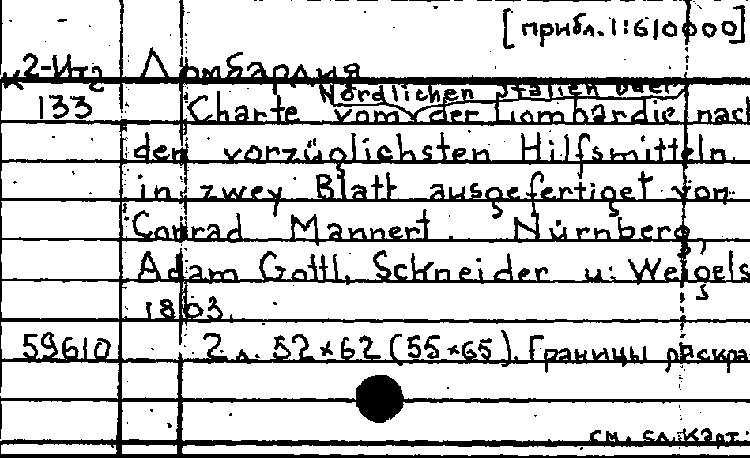 [прибл. 1:610000]
К2-Ит2 Ломбардия
Nördlichen Italien oder
133 Charte vom der Lombardie nach
den vorzüglichsten Hilfsmitteln
in zwey Blatt ausgefertiget von
Conrad Mannert. Nürnberg,
Adam Gottl. Schneider u: Weigels
1803.
59610 2 л. 52×62 (55×65). Границы раскра
см. сл. карт.